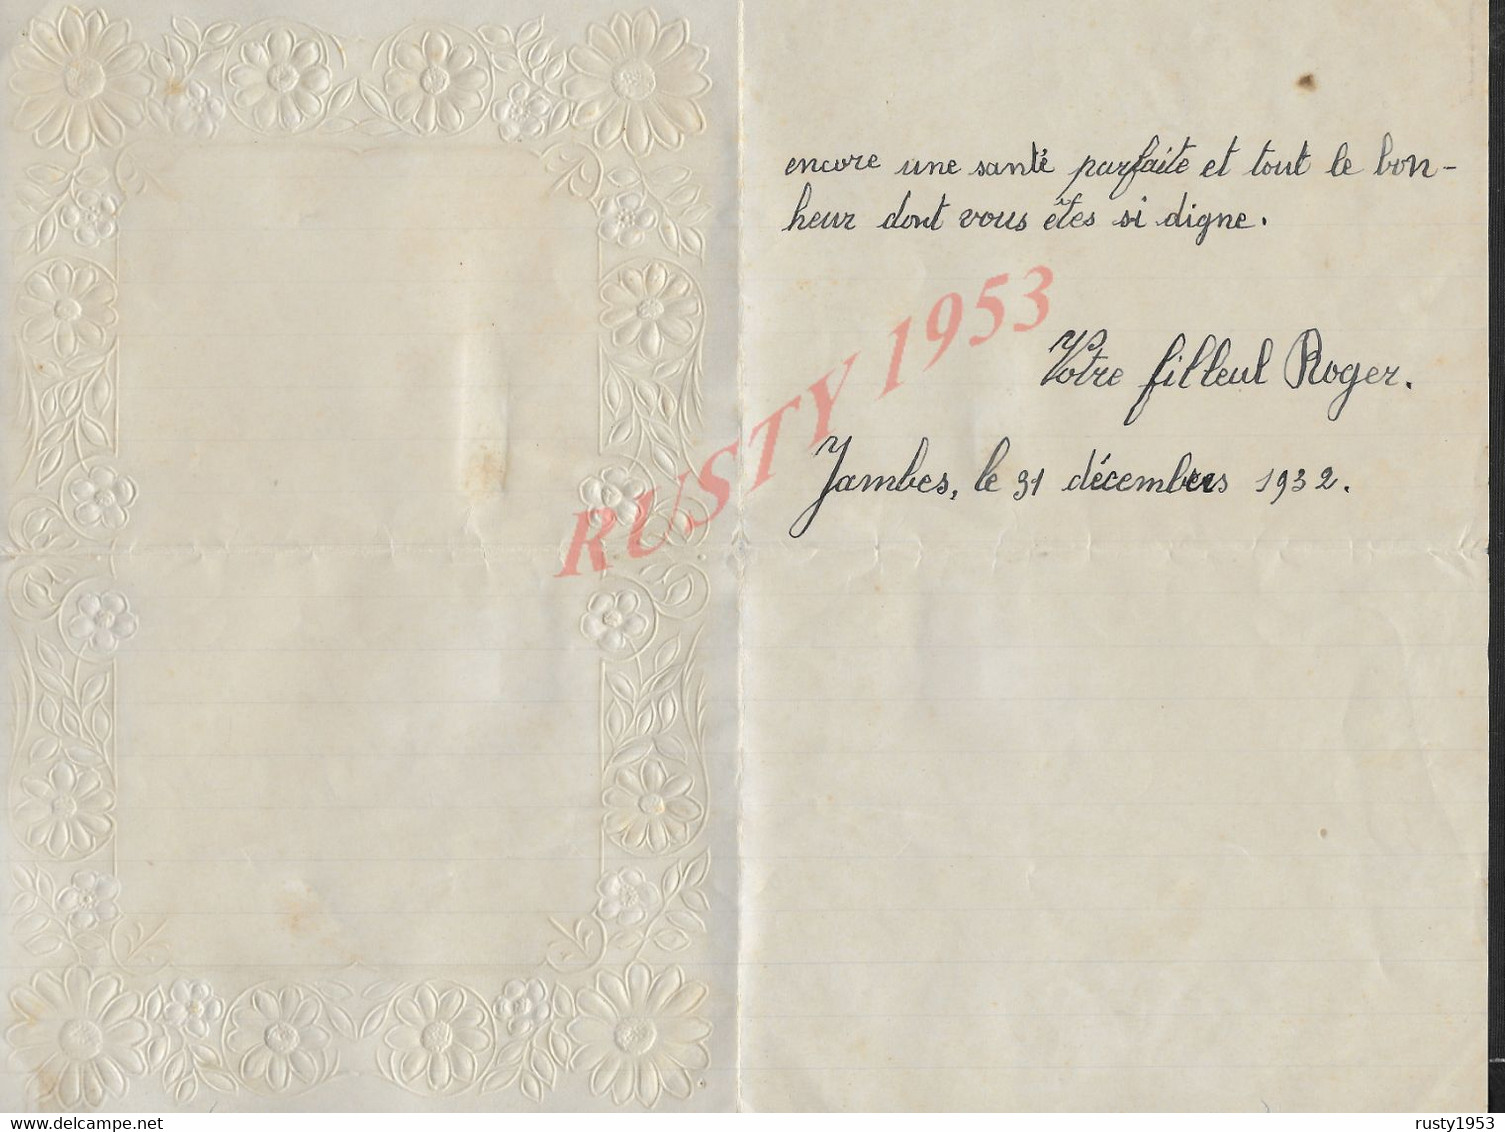 encore une santé parfaite et tout le bon-
heur dont vous êtes si digne.
Votre filleul Roger.
Jambes, le 31 décembre 1932.
RUSTY 1953
delcampe.net
rusty1953